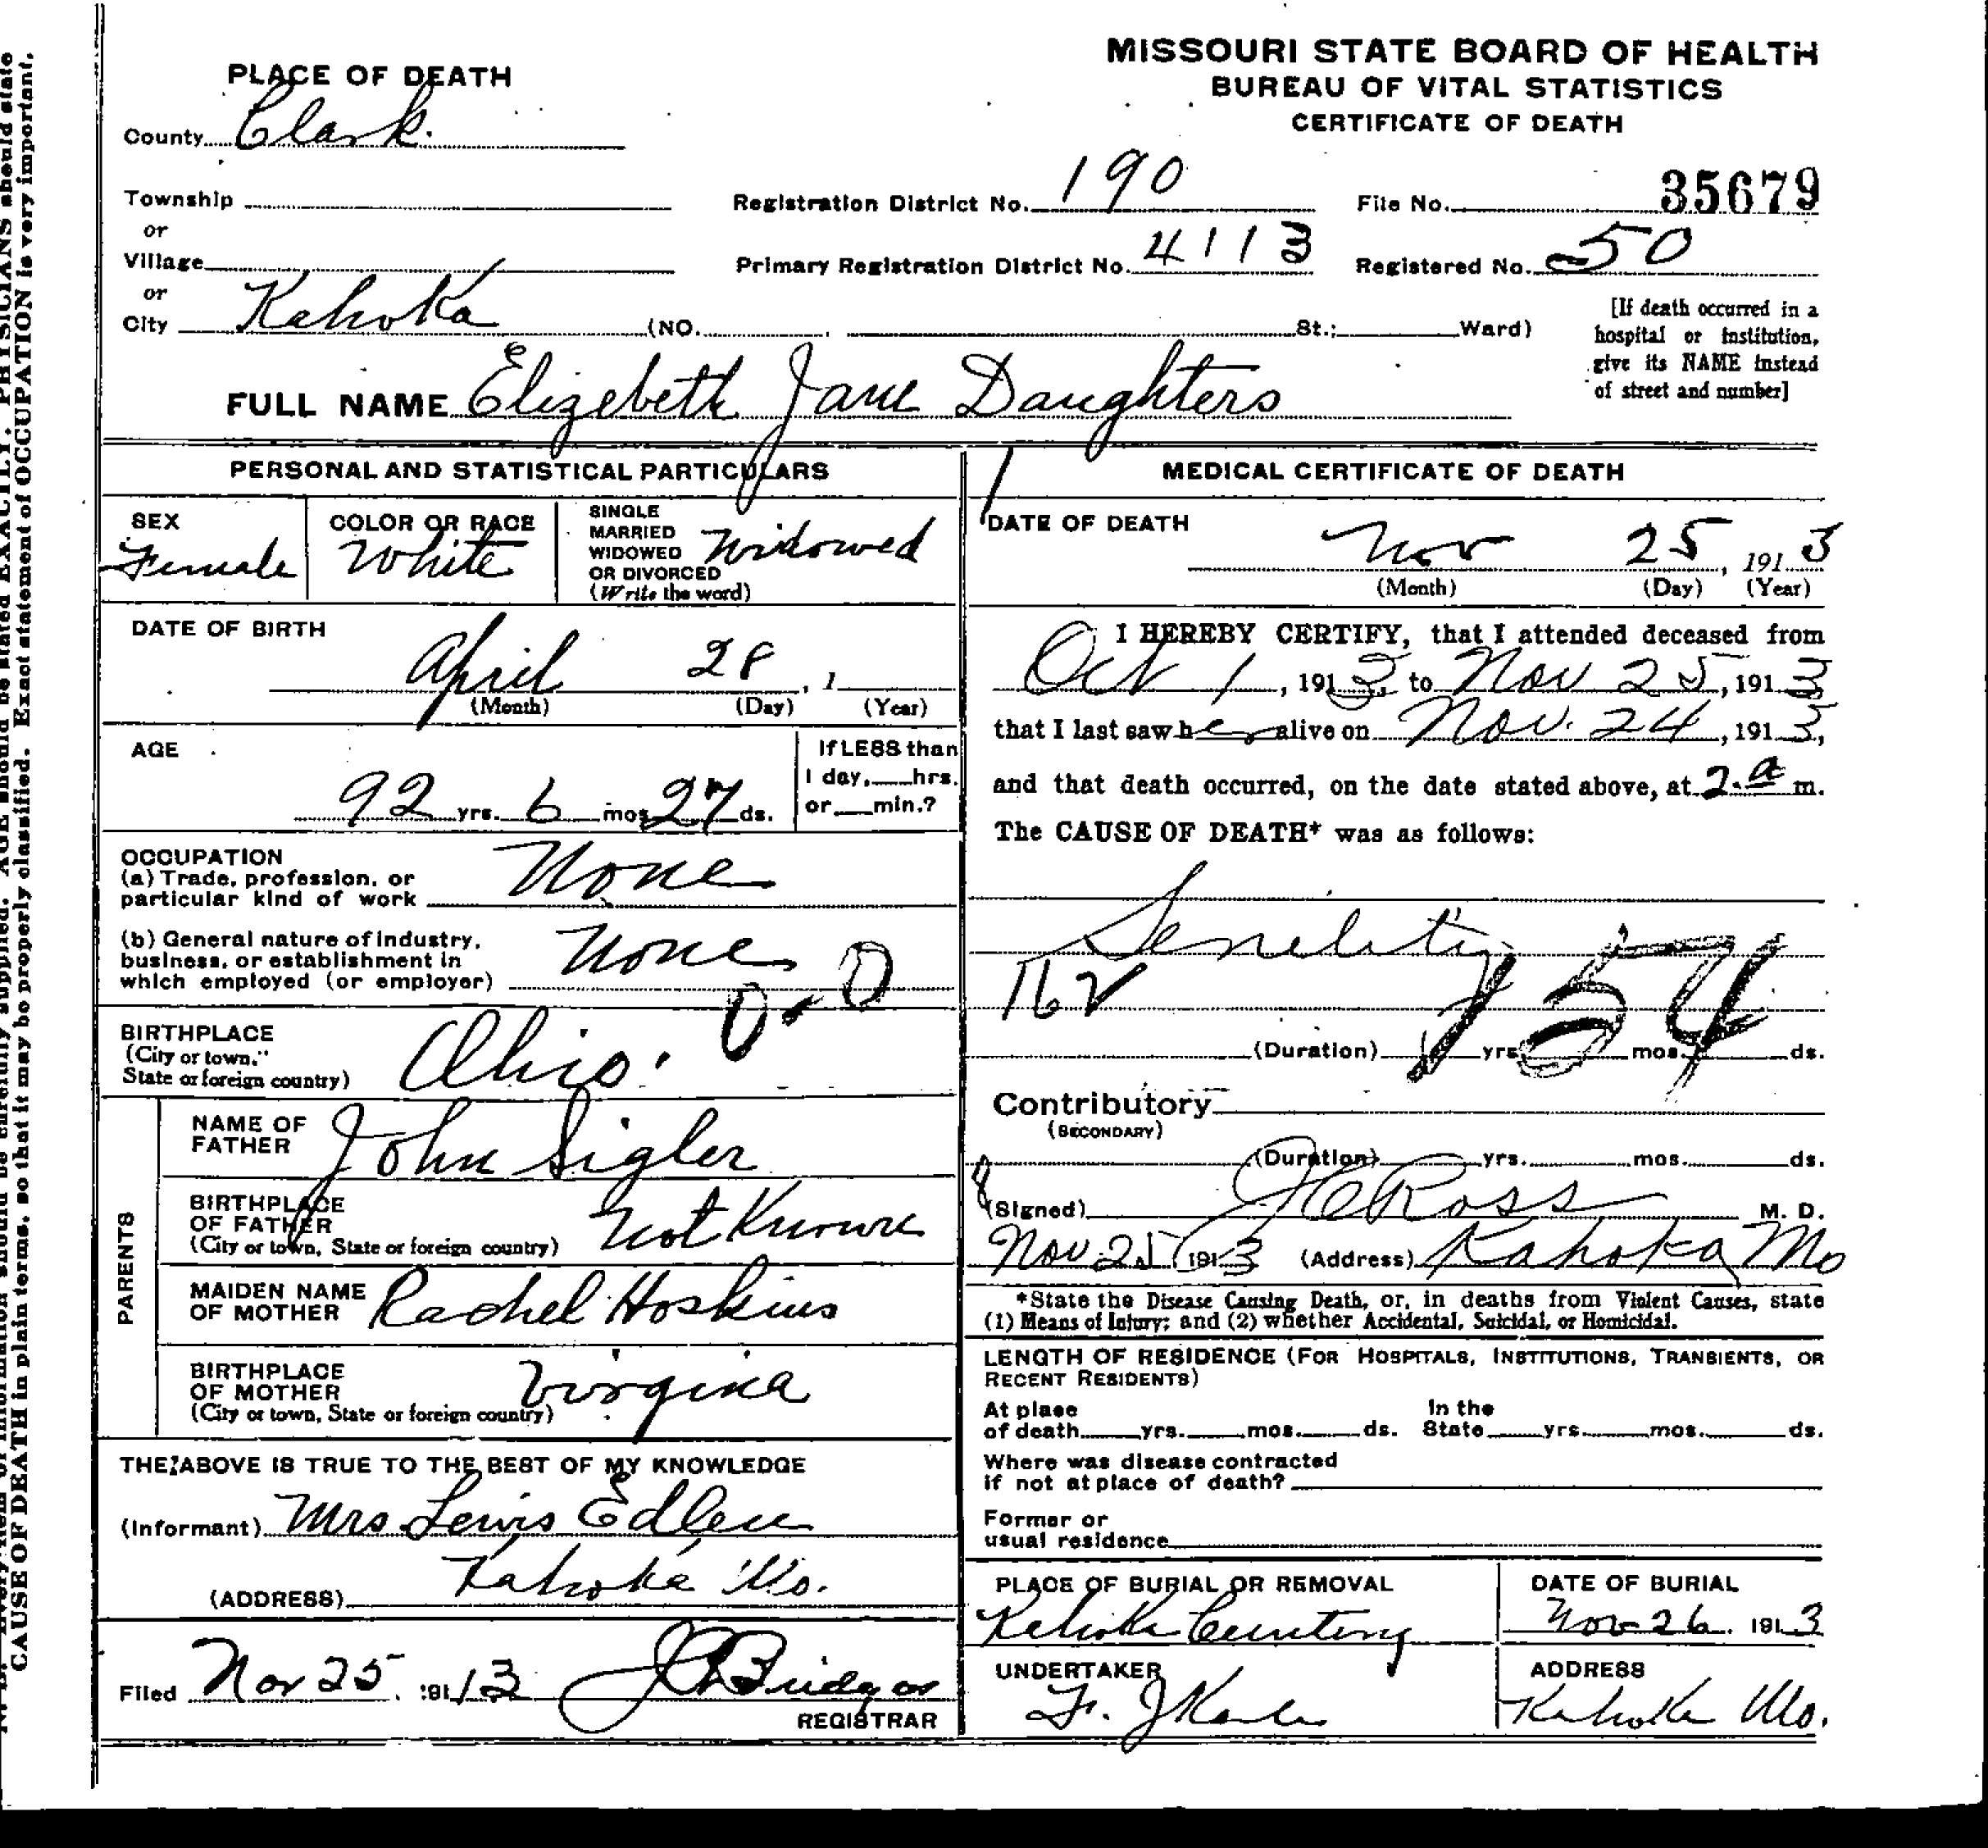 MISSOURI STATE BOARD OF HEALTH
BUREAU OF VITAL STATISTICS
CERTIFICATE OF DEATH
PLACE OF DEATH
County Clark.
Township
or
Village
or
City Kahoka (NO. St.; Ward)
Registration District No. 190
File No. 35679
Primary Registration District No. 4113
Registered No. 50
[If death occurred in a
hospital or institution,
give its NAME instead
of street and number]
FULL NAME Elizebeth Jane Daughters
PERSONAL AND STATISTICAL PARTICULARS
SEX
Female
COLOR OR RACE
White
SINGLE
MARRIED
WIDOWED
OR DIVORCED
(Write the word)
Widowed
DATE OF BIRTH
April 28, 1
(Month) (Day) (Year)
AGE
92 yrs. 6 mos 27 ds.
If LESS than
1 day, hrs.
or min.?
OCCUPATION
(a) Trade, profession, or
particular kind of work None
(b) General nature of industry,
business, or establishment in
which employed (or employer) None
0-0
BIRTHPLACE
(City or town,
State or foreign country) Ohio.
PARENTS
NAME OF
FATHER John Sigler
BIRTHPLACE
OF FATHER
(City or town, State or foreign country) Not Known
MAIDEN NAME
OF MOTHER Rachel Hoskins
BIRTHPLACE
OF MOTHER
(City or town, State or foreign country) Virginia
THE ABOVE IS TRUE TO THE BEST OF MY KNOWLEDGE
(Informant) Mrs Lewis Edlen
(ADDRESS) Kahoka Mo.
Filed Nov 25, 1913
REGISTRAR
MEDICAL CERTIFICATE OF DEATH
DATE OF DEATH
Nov 25, 1913
(Month) (Day) (Year)
I HEREBY CERTIFY, that I attended deceased from
Oct 1, 1913, to Nov 25, 1913
that I last saw her alive on Nov. 24, 1913,
and that death occurred, on the date stated above, at 2 a m.
The CAUSE OF DEATH* was as follows:
Senility
162 154
(Duration) yrs. mos. ds.
Contributory
(SECONDARY)
(Duration) yrs. mos. ds.
(Signed) J C Ross M. D.
Nov 25 1913 (Address) Kahoka Mo
*State the Disease Causing Death, or, in deaths from Violent Causes, state
(1) Means of Injury; and (2) whether Accidental, Suicidal, or Homicidal.
LENGTH OF RESIDENCE (FOR HOSPITALS, INSTITUTIONS, TRANSIENTS, OR
RECENT RESIDENTS)
At place
of death yrs. mos. ds.
In the
State yrs. mos. ds.
Where was disease contracted
if not at place of death?
Former or
usual residence
PLACE OF BURIAL OR REMOVAL
Kahoka Cemetery
DATE OF BURIAL
Nov 26 1913
UNDERTAKER
ADDRESS
Kahoka Mo.
CAUSE OF DEATH in plain terms, so that it may be properly classified. Exact statement of OCCUPATION is very important.